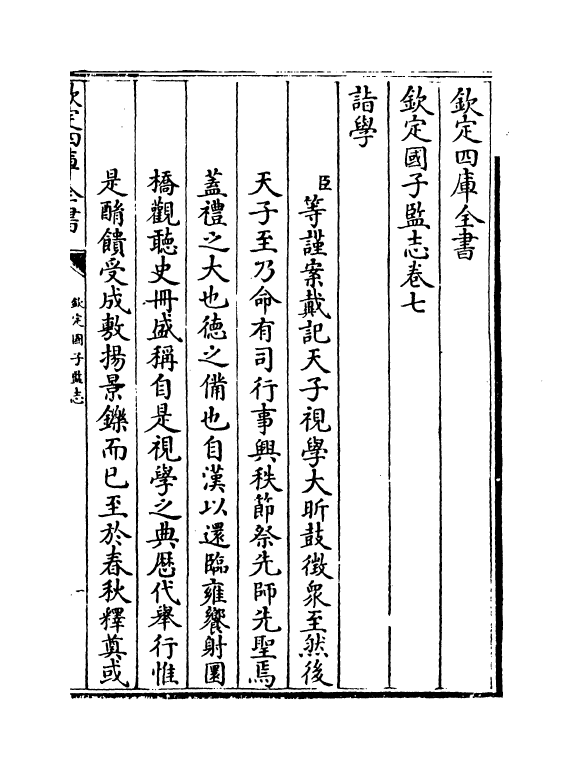 欽定四庫全書
欽定國子監志卷七
詣學
臣等謹案戴記天子視學大昕鼓徵衆至然後
天子至乃命有司行事興秩節祭先師先聖焉
蓋禮之大也徳之備也自漢以還臨雍饗射圜
橋觀聽史冊盛稱自是視學之典歴代舉行惟
是酳饋受成敷揚景鑠而已至於春秋釋奠或
欽定四庫全書
欽定國子監志
一